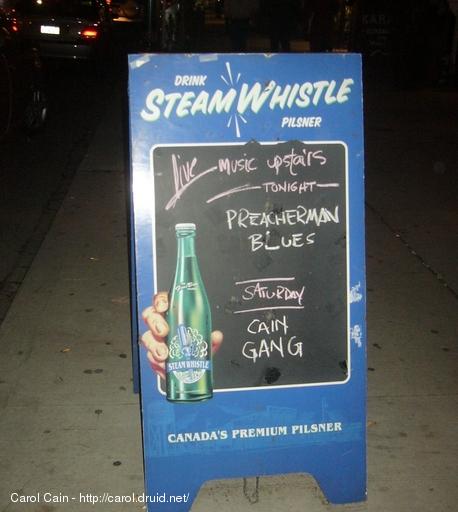 DRINK
STEAM WHISTLE
PILSNER
Live music upstairs
TONIGHT
PREACHERMAN
BLUES
SATURDAY
CAIN
GANG
STEAM WHISTLE
CANADA'S PREMIUM PILSNER
Carol Cain - http://carol.druid.net/